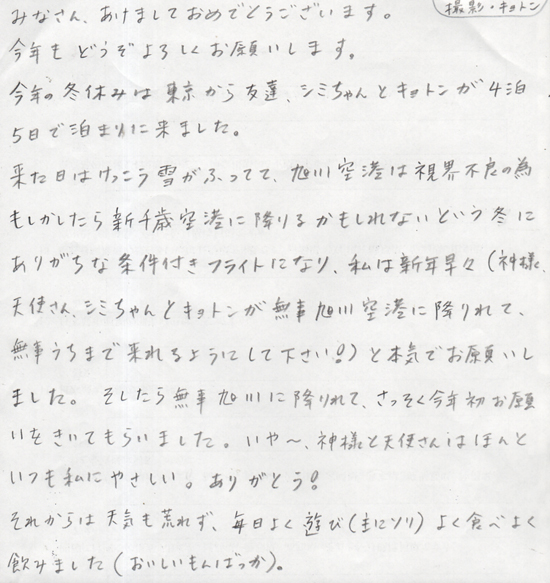 撮影・キョトン
みなさん、あけましておめでとうございます。
今年もどうぞよろしくお願いします。
今年の冬休みは東京から友達、シミちゃんとキョトンが4泊
5日で泊まりに来ました。
来た日はけっこう雪がふってて、旭川空港は視界不良の為
もしかしたら新千歳空港に降りるかもしれないという冬に
ありがちな条件付きフライトになり、私は新年早々(神様、
天使さん、シミちゃんとキョトンが無事旭川空港に降りれて、
無事うちまで来れるようにして下さい!)と本気でお願いし
ました。そしたら無事旭川に降りれて、さっそく今年初お願
いをきいてもらいました。いや〜、神様と天使さんはほんと
いつも私にやさしい。ありがとう!
それからは天気も荒れず、毎日よく遊び(主にソリ)よく食べよく
飲みました(おいしいもんばっか)。